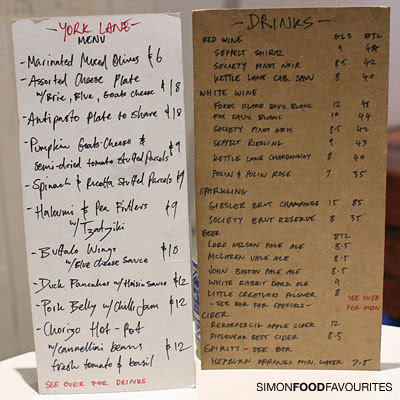 -YORK LANE-
MENU
- Marinated Mixed Olives $6
- Assorted Cheese Plate
w/Brie, Blue, Goats Cheese $18
- Antipasto Plate to share $18
- Pumpkin Goats Cheese &
semi-dried tomato Stuffed Parcels $9
- Spinach & Ricotta Stuffed Parcels $9
- Haloumi & Pea Fritters
w/Tzatziki $9
- Buffalo Wings
w/Blue Cheese Sauce $10
- Duck Pancakes w/Hoisin Sauce $12
- Pork Belly w/Chilli Jam $12
- Chorizo Hot-Pot
w/cannellini beans
fresh tomato & basil $12
SEE OVER FOR DRINKS
-DRINKS-
RED WINE GLS BTL
SEPPELT SHIRAZ 9 48
SOCIETY PINOT NOIR 8.5 42
KETTLE LANE CAB. SAUV 8 40
WHITE WINE
ISLAND SAUV. BLANC 12 48
FOX SAUV. BLANC 10 44
SOCIETY PINOT GRIS 8.5 42
SEPPELT RIESLING 9 43
KETTLE LANE CHARDONNAY 8 40
POLIN & POLIN ROSE 7 35
SPARKLING
GIESLER BRUT CHAMPAGNE 15 85
SOCIETY BRUT RESERVE 8 35
BEER BTL
LORD NELSON PALE ALE 8.5
MCLAREN VALE ALE 8.5
JOHN BOSTON PALE ALE 8.5
WHITE RABBIT DARK ALE 9
LITTLE CREATURES PILSNER 8
- SEE BAR FOR SPECIALS -
SEE OVER
FOR MENU
CIDER
REKORDERLIG APPLE CIDER 12
PIPSQUEAK BEST CIDER 8.5
SPIRITS - SEE BAR
HEPBURN SPRINGS MIN. WATER 7.5
SIMONFOODFAVOURITES